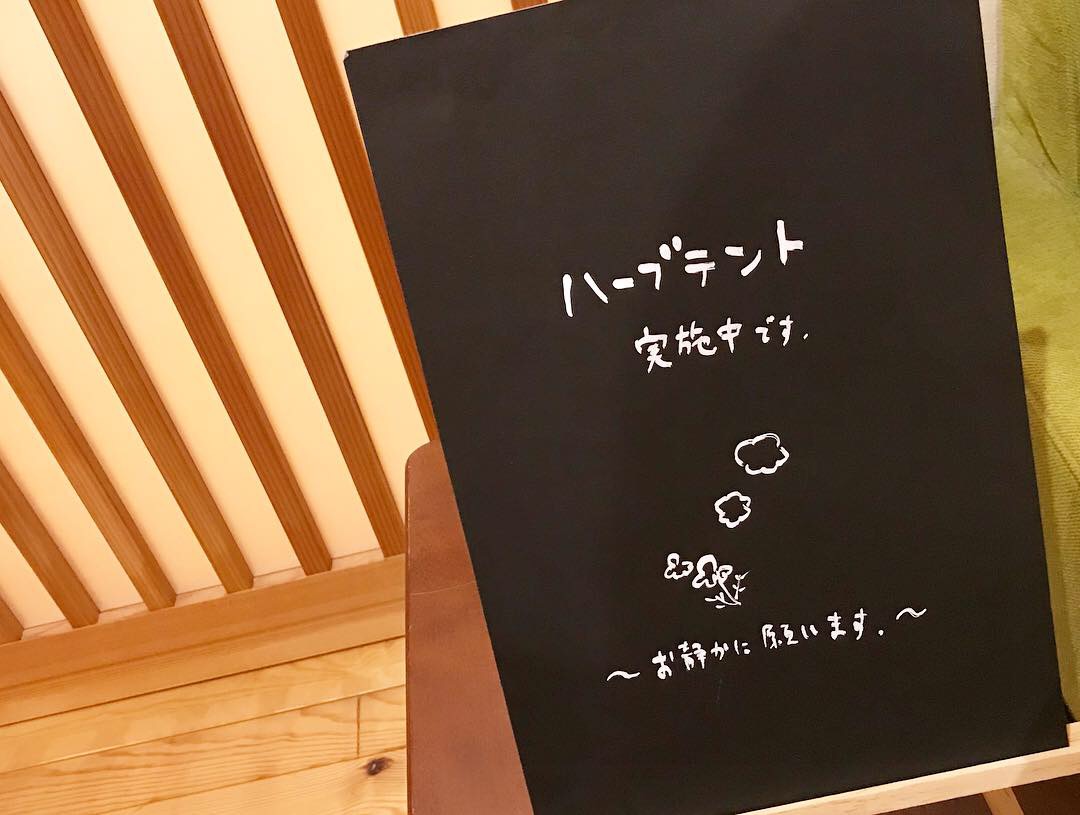 ハーブテント
実施中です.
～お静かに願います.～